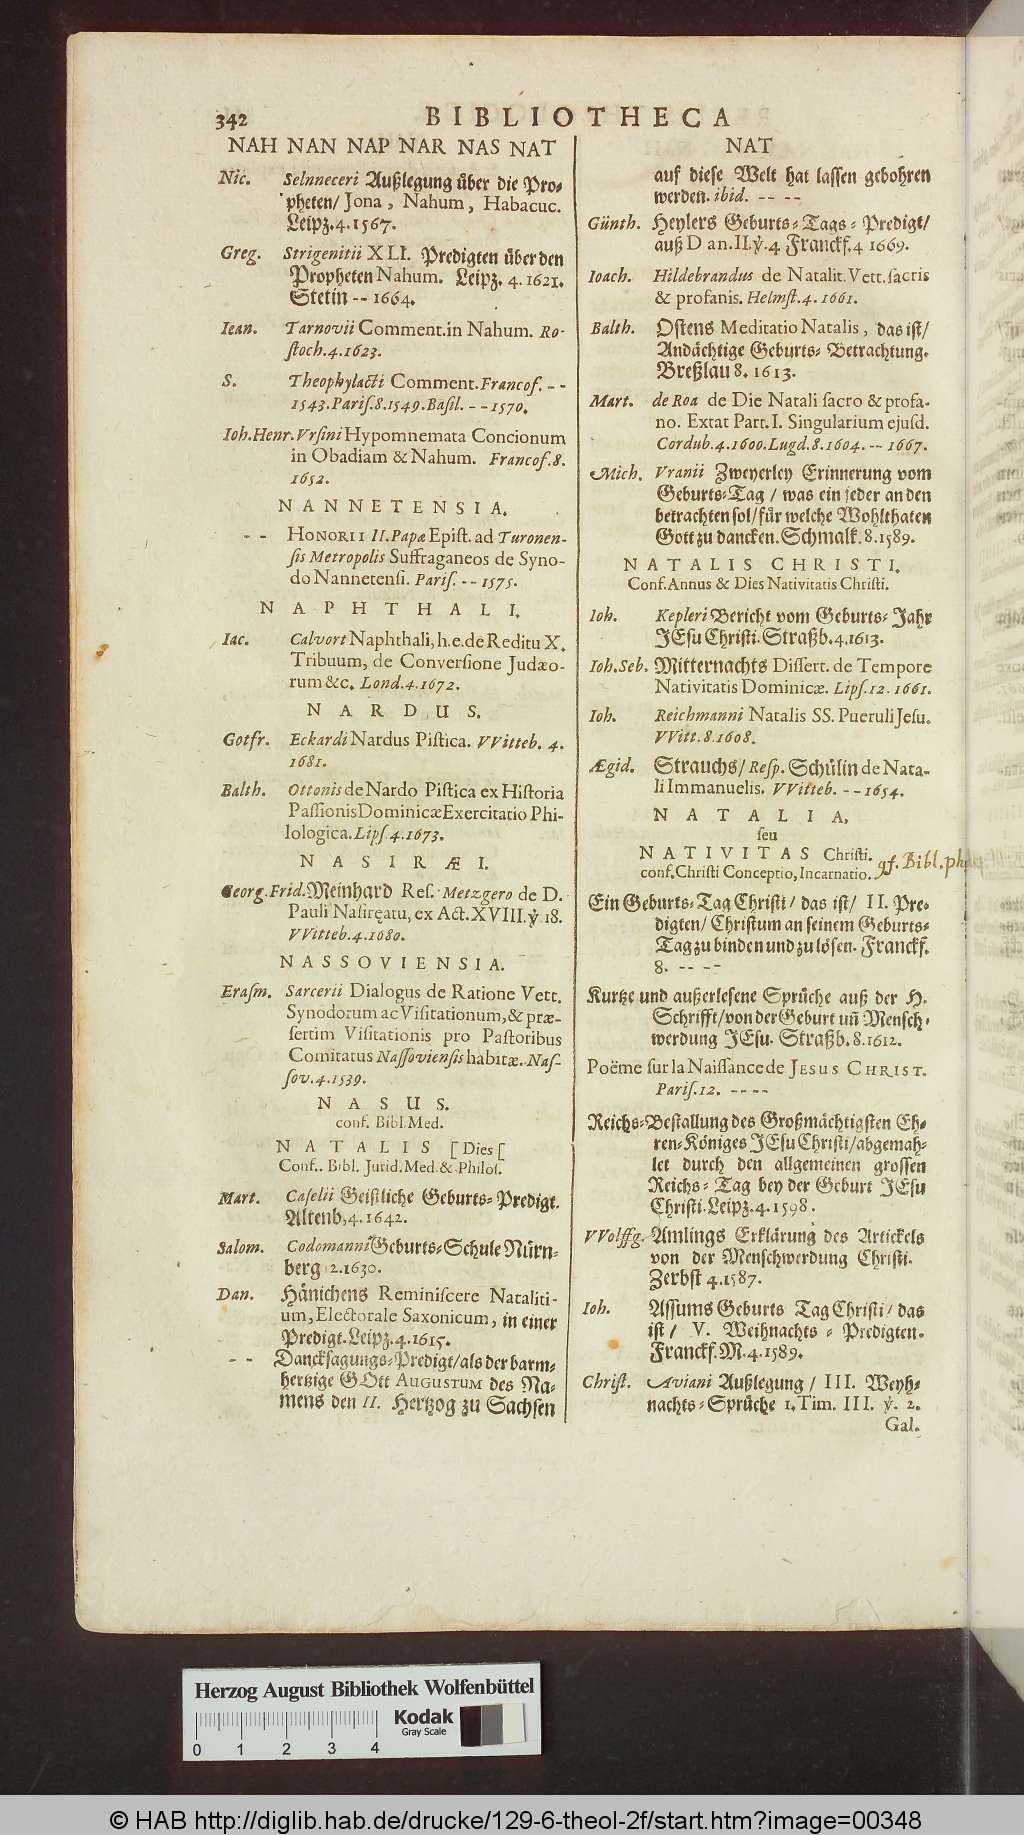 342
BIBLIOTHECA
NAH NAN NAP NAR NAS NAT
Nic. Selnneceri Außlegung über die Pro-
pheten/ Jona, Nahum, Habacuc.
Leipz. 4. 1567.
Greg. Strigenitii XLI. Predigten über den
Propheten Nahum. Leipz. 4. 1621.
Stetin -- 1664.
Iean. Tarnovii Comment. in Nahum. Ro-
stoch. 4. 1623.
S. Theophylacti Comment. Francof. --
1543. Paris. 8. 1549. Basil. -- 1570.
Ioh. Henr. Vrsini Hypomnemata Concionum
in Obadiam & Nahum. Francof. 8.
1652.
NANNETENSIA.
-- HONORII II. Papæ Epist. ad Turonen-
sis Metropolis Suffraganeos de Syno-
do Nannetensi. Paris. -- 1575.
NAPHTHALI.
Iac. Calvort Naphthali, h. e. de Reditu X.
Tribuum, de Conversione Judæo-
rum &c. Lond. 4. 1672.
NARDUS.
Gotfr. Eckardi Nardus Pistica. VVitteb. 4.
1681.
Balth. Ottonis de Nardo Pistica ex Historia
Passionis Dominicæ Exercitatio Phi-
lologica. Lips. 4. 1673.
NASIRÆI.
Georg. Frid. Meinhard Res. Metzgero de D.
Pauli Nasiręatu, ex Act. XVIII. ꝟ. 18.
VVitteb. 4. 1680.
NASSOVIENSIA.
Erasm. Sarcerii Dialogus de Ratione Vett.
Synodorum ac Visitationum, & præ-
sertim Visitationis pro Pastoribus
Comitatus Nassoviensis habitæ. Nas-
sov. 4. 1539.
NASUS.
conf. Bibl. Med.
NATALIS [Dies [
Conf. Bibl. Jurid. Med. & Philos.
Mart. Caselii Geistliche Geburts-Predigt.
Altenb, 4. 1642.
Salom. Codomanni Geburts-Schule Nürn-
berg 12. 1630.
Dan. Hänichens Reminiscere Nataliti-
um, Electorale Saxonicum, in einer
Predigt. Leipz. 4. 1615.
-- Dancksagungs-Predigt/ als der barm-
hertzige GOtt AUGUSTUM des Na-
mens den II. Hertzog zu Sachsen
NAT
auf diese Welt hat lassen gebohren
werden. ibid. -- --
Günth. Heylers Geburts-Tags-Predigt/
auß Dan. II. ꝟ. 4 Franckf. 4 1669.
Ioach. Hildebrandus de Natalit. Vett. sacris
& profanis. Helmst. 4. 1661.
Balth. Ostens Meditatio Natalis, das ist/
Andächtige Geburts-Betrachtung.
Breßlau 8. 1613.
Mart. de Roa de Die Natali sacro & profa-
no. Extat Part. I. Singularium ejusd.
Cordub. 4. 1600. Lugd. 8. 1604. -- 1667.
Mich. Vranii Zweyerley Erinnerung vom
Geburts-Tag / was ein jeder an den
betrachten sol/ für welche Wohlthaten
Gott zu dancken. Schmalk. 8. 1589.
NATALIS CHRISTI.
Conf. Annus & Dies Nativitatis Christi.
Ioh. Kepleri Bericht vom Geburts-Jahr
JEsu Christi. Straßb. 4. 1613.
Ioh. Seb. Mitternachts Dissert. de Tempore
Nativitatis Dominicæ. Lips. 12. 1661.
Ioh. Reichmanni Natalis SS. Pueruli Jesu.
VVitt. 8. 1608.
Ægid. Strauchs/ Resp. Schülin de Nata-
li Immanuelis. VVitteb. -- 1654.
NATALIA,
seu
NATIVITAS Christi.
conf. Christi Conceptio, Incarnatio. qf. Bibl.
Ein Geburts-Tag Christi / das ist/ II. Pre-
digten/ Christum an seinem Geburts-
Tag zu binden und zu lösen. Franckf.
8. -- --
Kurtze und außerlesene Sprüche auß der H.
Schrifft/ von der Geburt uñ Mensch-
werdung JEsu. Straßb. 8. 1612.
Poëme sur la Naissance de JESUS CHRIST.
Paris. 12. -- --
Reichs-Bestallung des Großmächtigsten Eh-
ren-Königes JEsu Christi/ abgemah-
let durch den allgemeinen grossen
Reichs-Tag bey der Geburt JEsu
Christi. Leipz. 4. 1598.
VVolffg. Amlings Erklärung des Artickels
von der Menschwerdung Christi.
Zerbst 4. 1587.
Ioh. Assums Geburts Tag Christi / das
ist/ V. Weihnachts-Predigten.
Franckf. M. 4. 1589.
Christ. Aviani Außlegung / III. Weyh-
nachts-Sprüche 1. Tim. III. ꝟ. 2.
Gal.
Herzog August Bibliothek Wolfenbüttel
Kodak
Gray Scale
0 1 2 3 4
© HAB http://diglib.hab.de/drucke/129-6-theol-2f/start.htm?image=00348